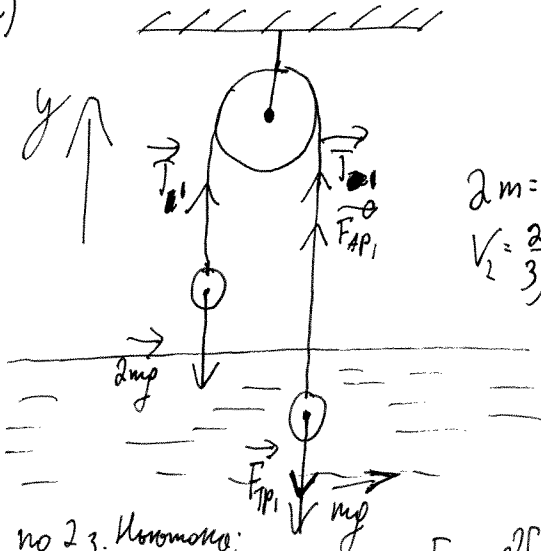 y
T₁
T₁
F_Ap₁
2m =
V₂ = 2/3
2mg
F_Tp₁
mg
по 2 з. Ньютона: